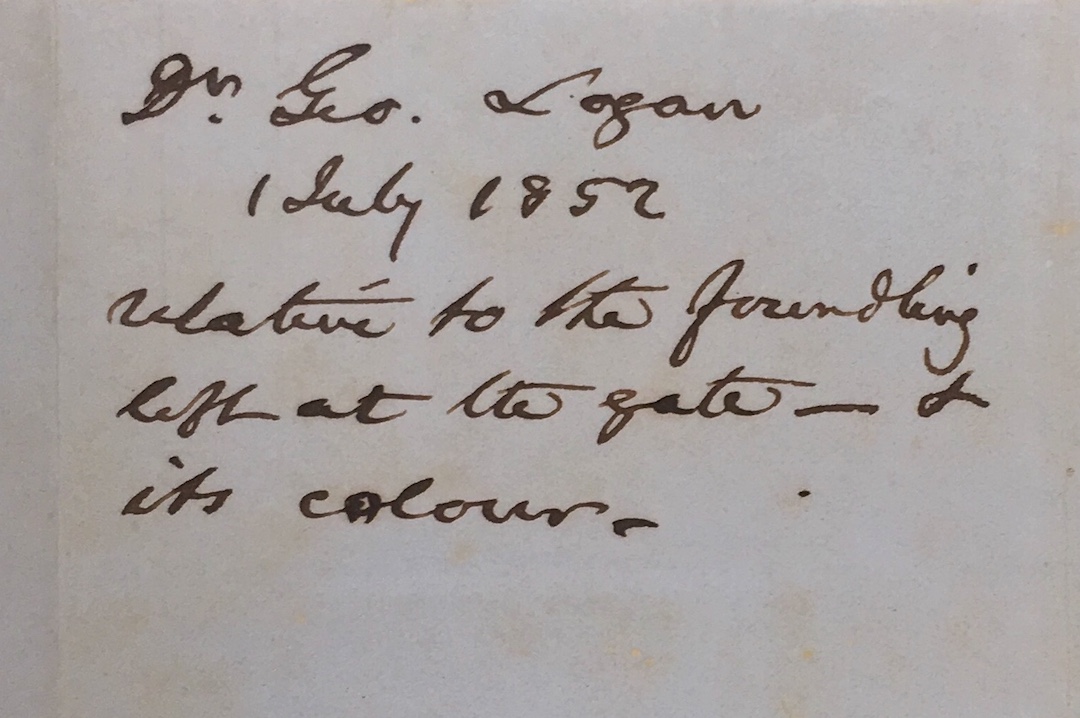 Dr. Geo. Logan
1 July 1852
relative to the foundling
left at the gate — &
its colour.